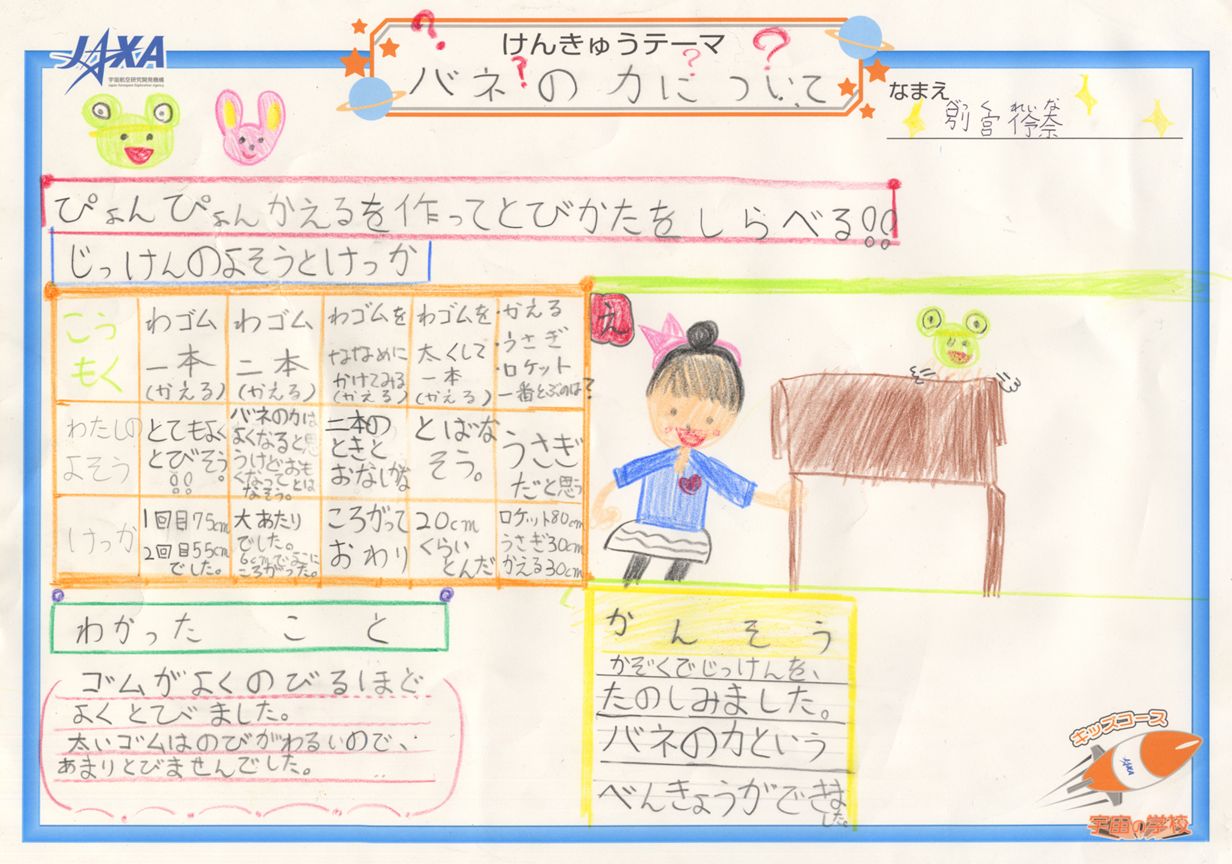 JAXA
宇宙航空研究開発機構
Japan Aerospace Exploration Agency
けんきゅうテーマ
バネの力について
なまえ
べっく れいな
別宮 伶奈
ぴょんぴょんかえるを作ってとびかたをしらべる!!
じっけんのよそうとけっか
こう
もく
わゴム
一本
(かえる)
わゴム
二本
(かえる)
わゴムを
ななめに
かけてみる
(かえる)
わゴムを
太くして
一本
(かえる)
・かえる
・うさぎ
・ロケット
一番とぶのは?
わたしの
よそう
とてもよく
とびそう。
!!
バネの力は
よくなると思
うけどおも
くなってとば
なそう。
二本の
ときと
おなじかな
とばな
そう。
うさぎ
だと思う
けっか
1回目75cm
2回目55cm
でした。
大あたり
でした。
6cmでよこに
ころがった。
ころがって
おわり
20cm
くらい
とんだ
ロケット80cm
うさぎ30cm
かえる30cm
え
わかったこと
ゴムがよくのびるほど
よくとびました。
太いゴムはのびがわるいので、
あまりとびませんでした。
かんそう
かぞくでじっけんを、
たのしみました。
バネの力という
べんきょうができま
した。
キッズコース
JAXA
宇宙の学校